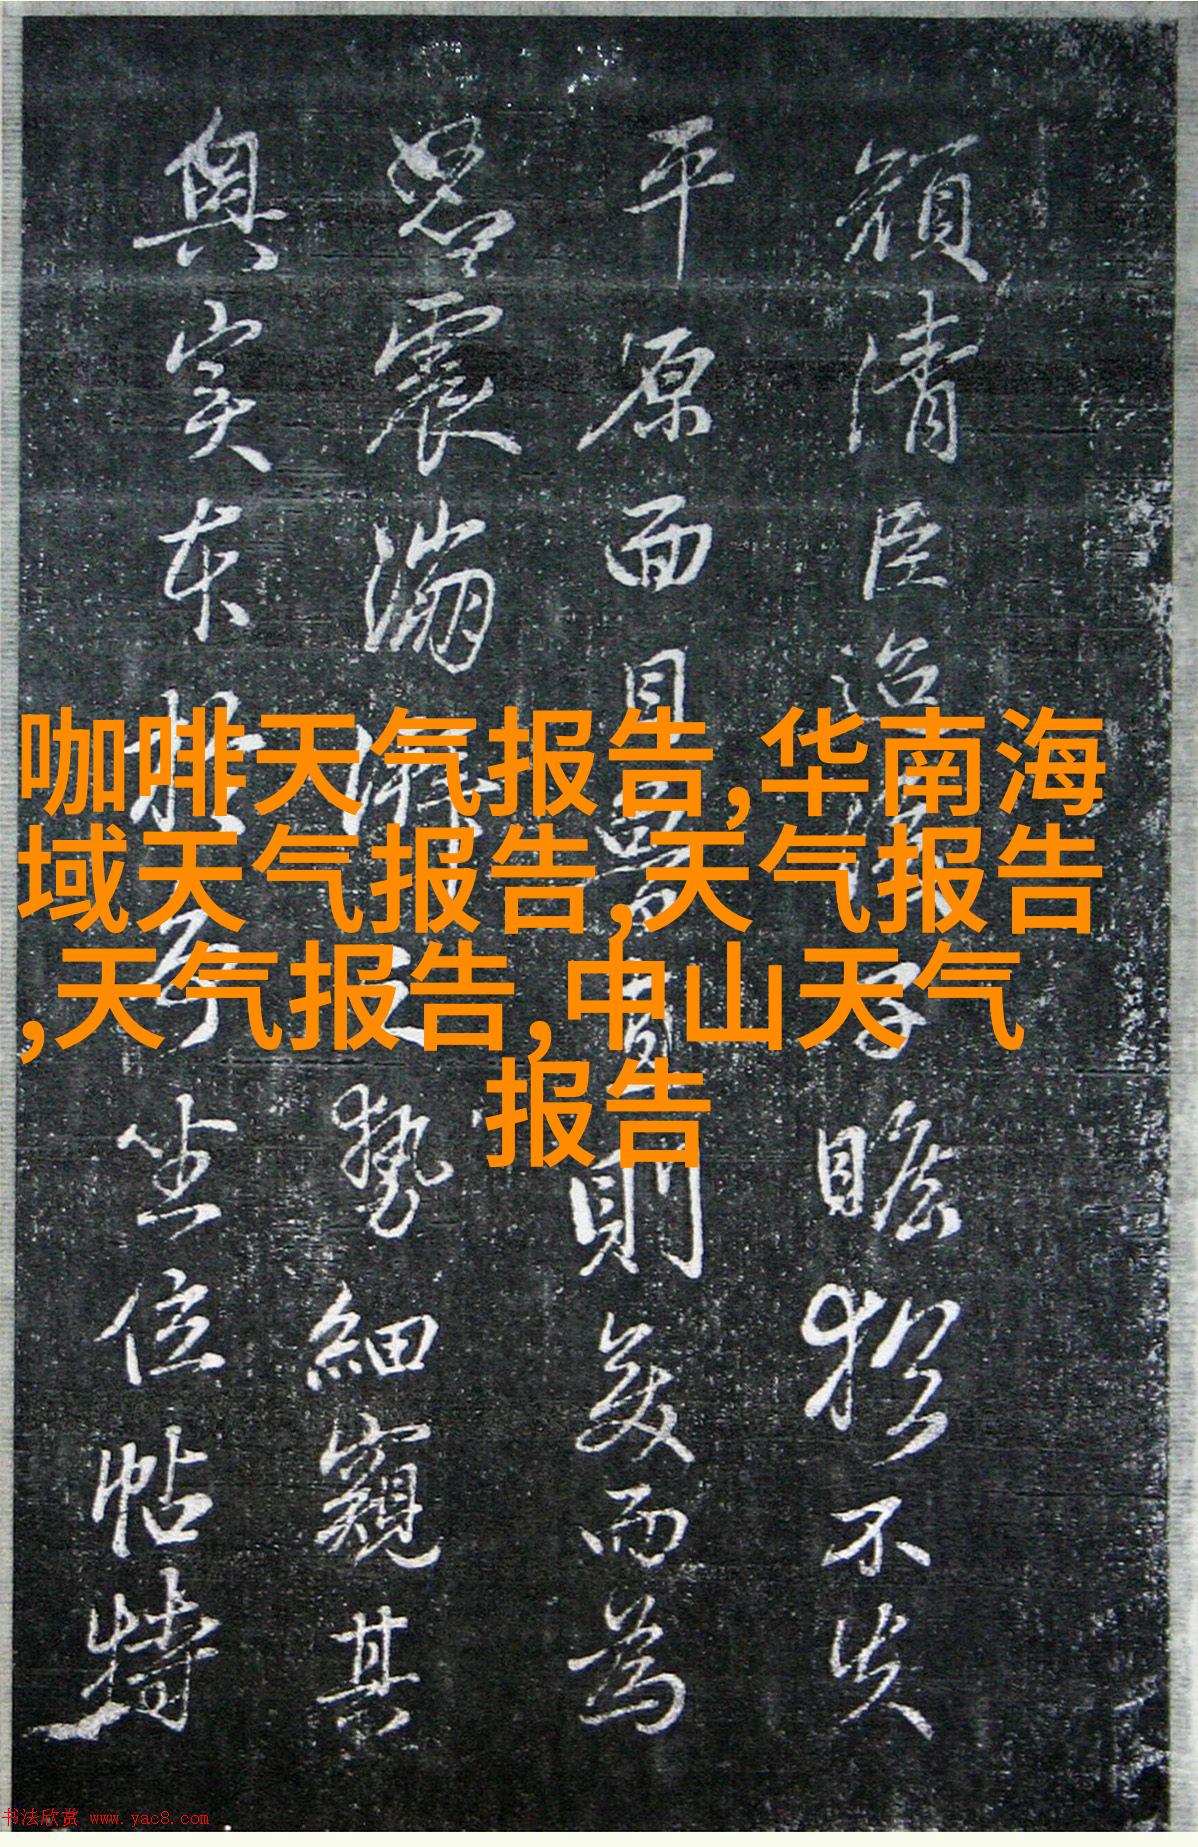 咖啡天气报告,华南海
域天气报告,天气报告
,天气报告,中山天气
报告
顏清臣子瞻猶不失
平原面目則美而為
震之勢細窺其
奥实本於争坐位帖特
书法欣赏 www.yac8.com